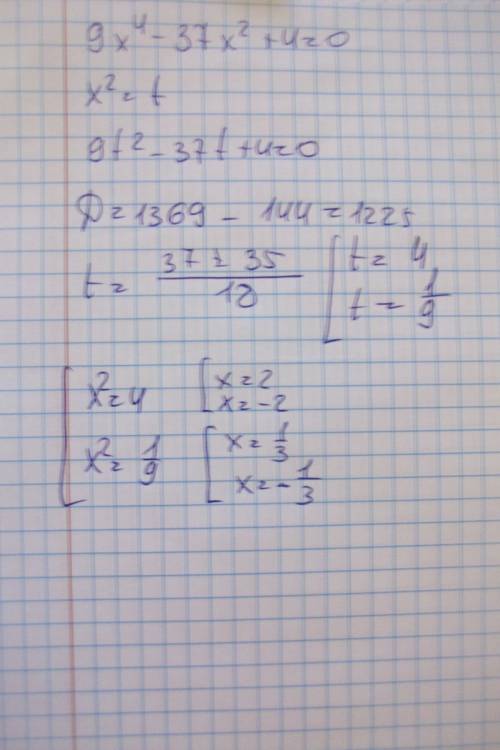 9x⁴ - 37x² + 4 = 0
x² = t
9t² - 37t + 4 = 0
D = 1369 - 144 = 1225
t = (37 ± 35)/18 [ t = 4
t = 1/9
[ x² = 4 [ x = 2
x = -2
x² = 1/9 [ x = 1/3
x = -1/3